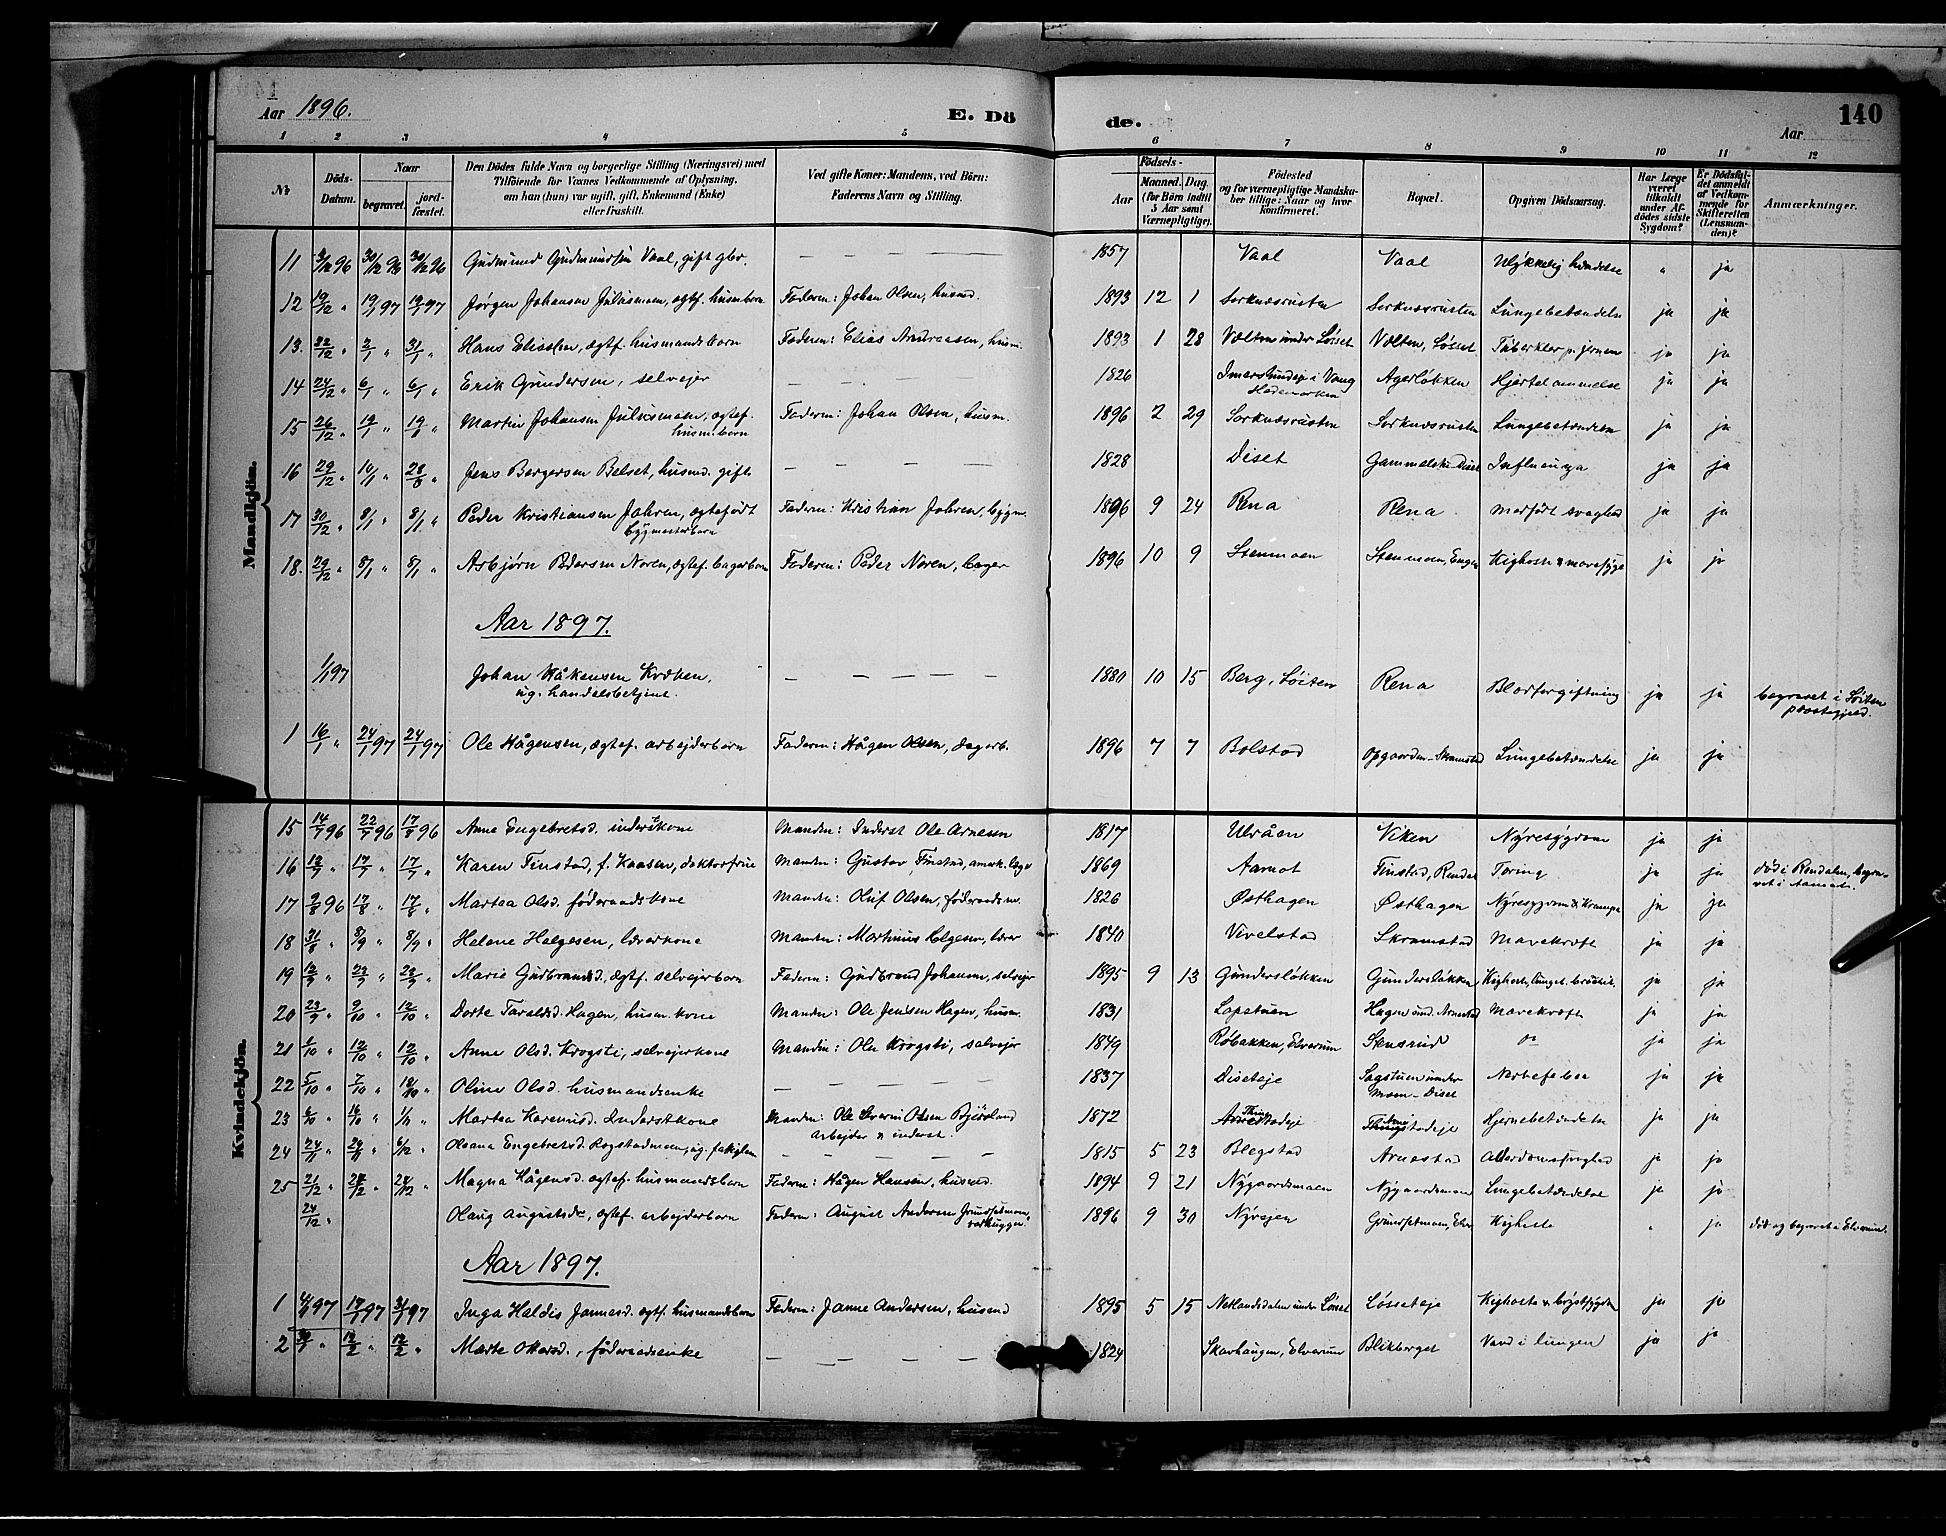 Aar 1896.
E. Dö
de.
140
Aar
1 2 3 4 5 6 7 8 9 10 11 12
No
Döds-Datum.
Naar
begravet.
jord-fæstet.
Den Dödes fulde Navn og borgerlige Stilling (Næringsvei) med
Tilföiende for Voxnes Vedkommende af Oplysning,
om han (hun) var ugift, gift, Enkemand (Enke)
eller fraskilt.
Ved gifte Koner: Mandens, ved Börn:
Faderens Navn og Stilling.
Födsels-
Aar
Maaned. Dag.
(for Börn indtil
5 Aar samt
Værnepligtige).
Födested
og for værnepligtige Mandska-
ber tillige: Naar og hvor
konfirmeret.
Bopæl.
Opgiven Dödsaarsag.
Har Læge
været
tilkaldt
under Af-
dödes sidste
Sygdom?
Er Dödsfal-
det anmeldt
af Vedkom-
mende for
Skifteretten
(Lensman-
den)?
Anmærkninger.
Mandkjön.
11 96 30/12 96 30/12 96 Gudmund Gudmundsen Vaal, gift gbr. — — — — 1857 Vaal Vaal Ulykkelig hændelse " ja
12 19/12 " 19/1 97 19/1 97 Jørgen Johansen Juliusmoen, ægtef. husm.born Faderen: Johan Olsen, husmd. 1893 12 1 Sorknæsrusten Sorknæsrusten Lungebetændelse ja ja
13. 22/12 " 2/1 " 31/1 " Hans Eliassen, ægtef. husmandsbarn Faderen: Elias Andreassen, husm. 1893 1 28 Vælten under Løsset Vælten, Løsset Tuberkler p. hjernen ja ja
14 24/12 " 6/1 " 6/1 " Erik Gundersen, selvejer — — — — 1826 i Vang Hedemarken Agerløkken Hjertelammelse ja ja
15 26/12 " Martin Johansen Juliusmoen, ægtef. husm.born Faderen: Johan Olsen, husm. 1896 2 29 Sorknæsrusten Sorknæsrusten Lungebetændelse ja ja
16 29/12 " 10/1 " Jens Bergersen Belset, husmd. gift — — — — 1828 Diset Diset Influenza ja ja
17 30/12 " 8/1 " 8/1 " Peder Kristiansen Johren, ægtefødt bygmesterbarn Faderen: Kristian Johren, bygm. 1896 9 24 Rena Rena Medfødt svaghed ja ja
18. 29/12 " 8/1 " 8/1 " Asbjørn Pedersen Noren, ægtef. bagerbarn Faderen: Peder Noren, bager 1896 10 9 Stenmoen Stenmoen, Kighoste & mavesyge ja ja
Aar 1897.
1/1 97 Johan Håkensen Kræken, ug. handelsbetjent. — — — — — 1880 10 15 Berg, Løiten Rena Blodforgiftning ja ja begravet i Løiten præstegjeld.
1 16/1 " 24/1 97 24/1 97 Ole Hågensen, ægtef. arbejderbarn Faderen: Hågen Olsen, dagarb. 1896 7 7 Bolstad Opgaarden-Skramstad Lungebetændelse ja ja
Kvindekjön.
15 14/7 96 22/7 96 17/8 96 Anne Engebretsd. inderstkone Manden: Inderst Ole Arnesen 1817 Ulvåen Viken Nyresygdom ja ja
16 12/7 " 17/7 " 17/7 " Karen Finstad, f. Kaasen, doktorfrue Manden: Gustav Finstad, amerk. læge 1869 Aamot Finstad, Rendal Tæring ja ja død i Rendalen, begravet i Aamot.
17 2/8 96 17/8 " 17/8 " Martea Olsd. føderaadskone Manden: Oluf Olsen, føderaadsm. 1826 Østhagen Østhagen Nyresygdom & Krampe ja ja
18 31/8 " 8/9 " 8/9 " Helene Helgesen, lærerkone Manden: Martinus Helgesen, lærer 1840 Vivelstad Skramstad Mavekræft ja ja
19 12/9 " 22/9 " 22/9 " Marie Gudbrandsd. ægtef. selvejerbarn Faderen: Gudbrand Johansen, selvejer 1895 9 13 Gundersløkken Gundersløkken Kighoste, ja ja
20 23/9 " 2/10 " 12/10 " Dorte Taraldsd. Hagen, husm. kone Manden: Ole Jensen Hagen, husm. 1831 Løpetuen Hagen und. Arnestad Mavekræft ja ja
21 12/10 " 12/10 " Anne Olsd. Krogsti, selvejerkone Manden: Ole Krogsti, selvejer 1849 Røbakken, Elverum Stensrud do ja ja
22 5/10 " 7/10 " Oline Olsd. husmandsenke — — — — — 1837 Diseteje Sagstuen under Moen-Diset Nervefeber ja ja
23 Martea Karenusd. Inderstkone Manden: Ole Olsen Bjørsland arbejder & inderst. 1872 Hjernebetændelse ja ja
24 Oleana Engebretsd. Rogstadmoen, ug. fattiglem — — — — — 1815 5 23 Blegstad Arnestad Alderdomssvaghed ja ja
25 21/12 " Magna Hågensd. ægtef. husmandsbarn Faderen: Hågen Hansen, husmd. 1894 9 21 Nygaardsmoen Nygaardsmoen Lungebetændelse ja ja
24/12 " Olaug Augustsdr., ægtef. arbejderbarn Faderen: August Andersen Grundsetmoen, 1896 9 30 Nysjøen Grundsetmoen, Elv. Kighoste " ja død og begravet i Elverum.
Aar 1897.
1 97 97 97 Inga Haldis Jannesd. ægtf. husmandsbarn Faderen: Janne Andersen, husmd 1895 5 15 under Løsset Løsseteje Kighoste & brystsygdom ja ja
2 " 12/2 " 12/2 " Marte Ottersd., føderaadsenke — — — — — 1824 Skavhaugen, Elverum Blikberget Vand i lungen ja ja